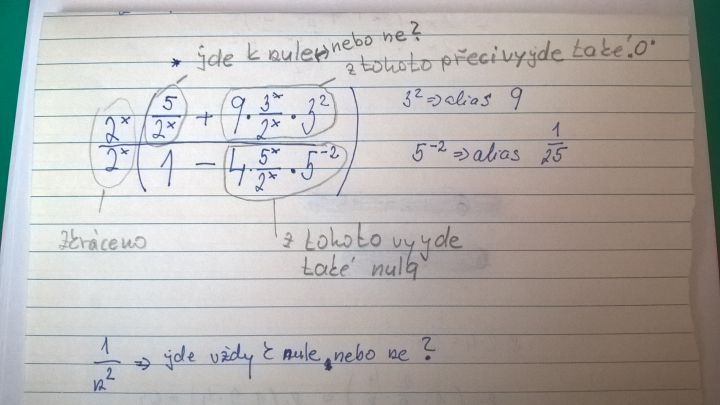 * jde k nule, nebo ne?
z tohoto přeci vyjde také "0"
2^x/2^x ( (5/2^x + 9 · 3^x/2^x · 3^2) / (1 - 4 · 5^x/2^x · 5^-2) )
3^2 => alias 9
5^-2 => alias 1/25
Zkráceno
z tohoto vyjde
také nula
1/n^2 => jde vždy k nule, nebo ne?